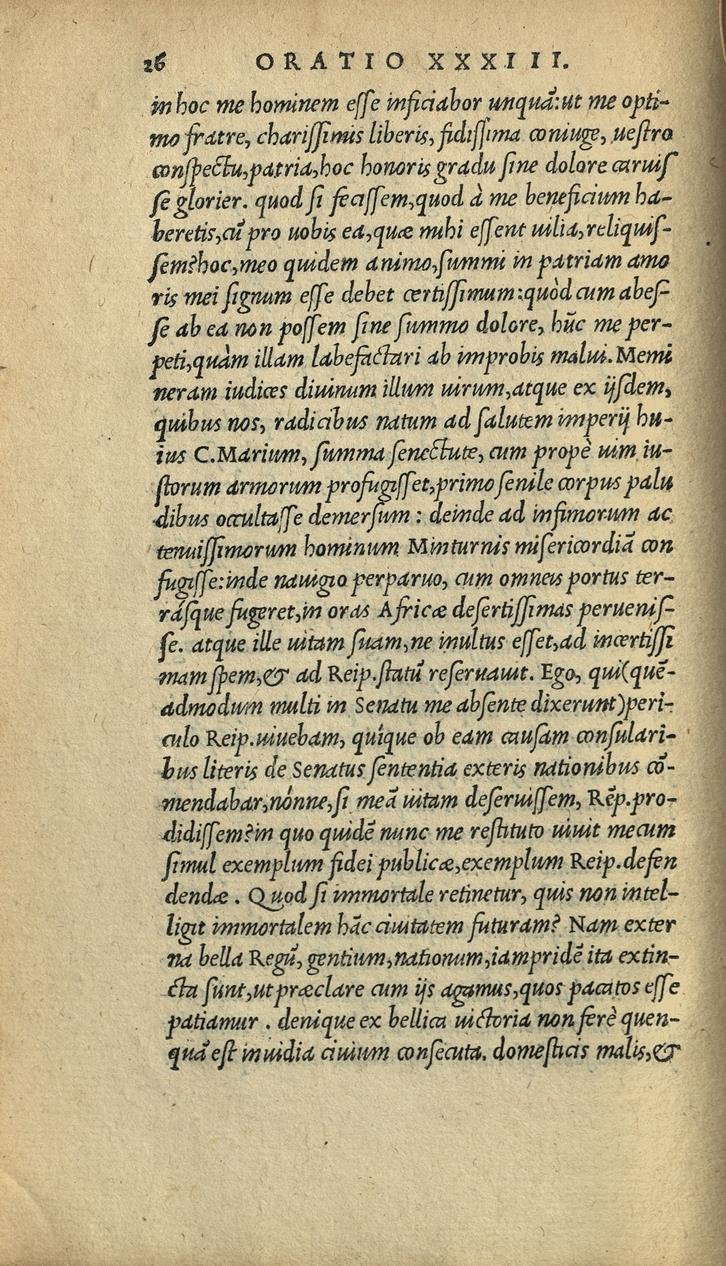 26 ORATIO XXXIII.
in hoc me hominem esse inficiabor unquā: ut me opti-
mo fratre, charissimis liberis, fidissima coniuge, uestro
conspectu, patria, hoc honoris gradu sine dolore caruis
se glorier. quod si fecissem, quod à me beneficium ha-
beretis, cū pro uobis ea, quæ mihi essent uilia, reliquis-
sem? hoc, meo quidem animo, summi in patriam amo
ris mei signum esse debet certissimum: quòd cum abes-
se ab ea non possem sine summo dolore, hūc me per-
peti, quàm illam labefactari ab improbis malui. Memi
neram iudices diuinum illum uirum, atque ex ijsdem,
quibus nos, radicibus natum ad salutem imperij hu-
ius C. Marium, summa senectute, cum propè uim iu-
storum armorum profugisset, primo senile corpus palu
dibus occultasse demersum: deinde ad infimorum ac
tenuissimorum hominum Minturnis misericordiā con
fugisse: inde nauigio perparuo, cum omneis portus ter-
rásque fugeret, in oras Africæ desertissimas peruenis-
se. atque ille uitam suam, ne inultus esset, ad incertissi
mam spem, & ad Reip. statū reseruauit. Ego, qui (quē-
admodum multi in Senatu me absente dixerunt) peri-
culo Reip. uiuebam, quíque ob eam causam consulari-
bus literis de Senatus sententia exteris nationibus cō-
mendabar, nónne, si meā uitam deseruissem, Rēp. pro-
didissem? in quo quidē nunc me restituto uiuit mecum
simul exemplum fidei publicæ, exemplum Reip. defen
dendæ. Quod si immortale retinetur, quis non intel-
ligit immortalem hāc ciuitatem futuram? Nam exter
na bella Regū, gentium, nationum, iampridē ita extin-
cta sunt, ut præclare cum ijs agamus, quos pacatos esse
patiamur. denique ex bellica uictoria non ferè quen-
quā est inuidia ciuium consecuta. domesticis malis, &